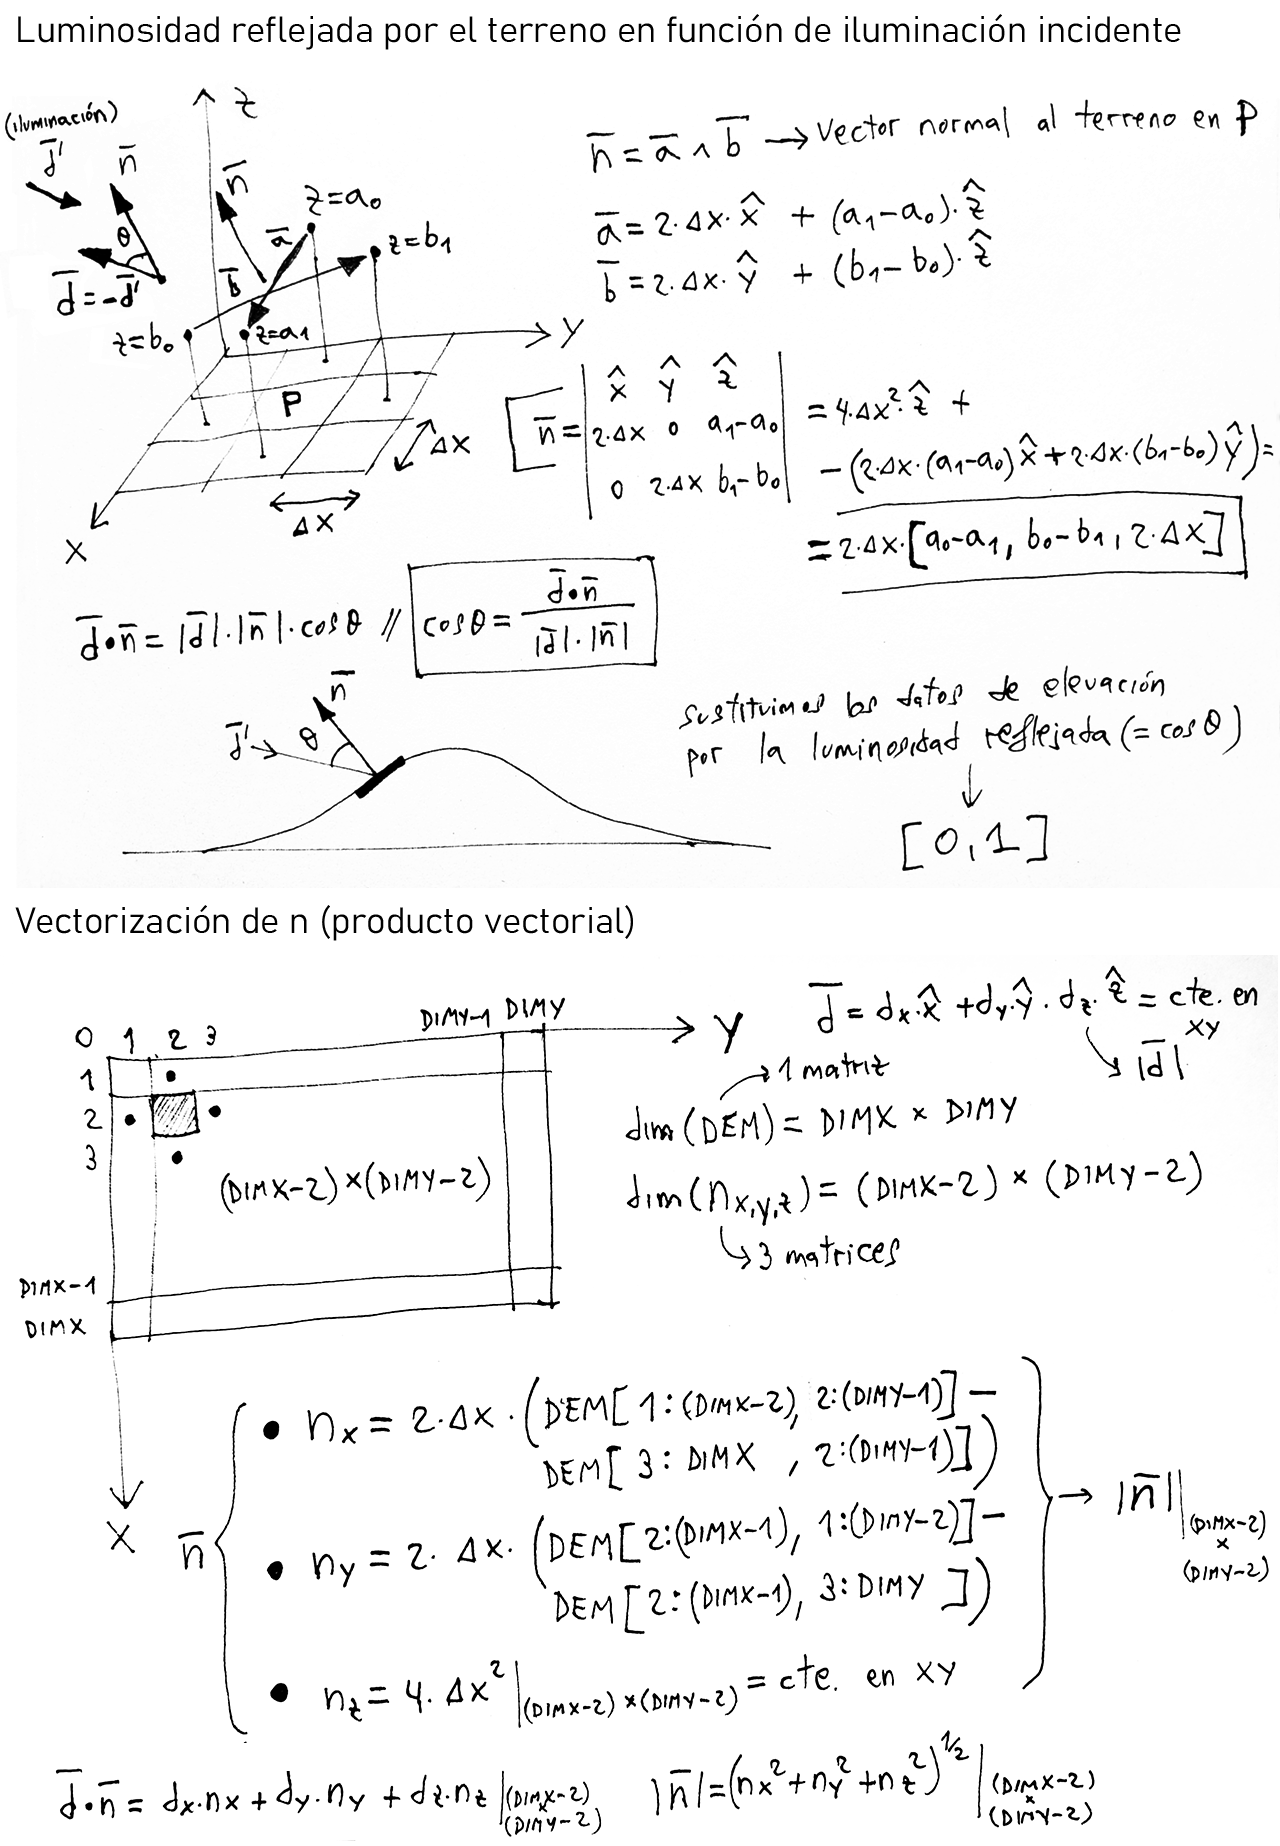 Luminosidad reflejada por el terreno en función de iluminación incidente
(iluminación)
d̅'
n̅
θ
d̅=-d̅'
z
n̅
z=a₀
a̅
z=b₁
b̅
z=b₀
z=a₁
Y
P
ΔX
ΔX
X
n̅ = a̅ ∧ b̅ → Vector normal al terreno en P
a̅ = 2·Δx·x̂ + (a₁-a₀)·ẑ
b̅ = 2·Δx·ŷ + (b₁-b₀)·ẑ
x̂ ŷ ẑ
n̅ = | 2·Δx 0 a₁-a₀ | = 4·Δx²·ẑ +
0 2·Δx b₁-b₀
-(2·Δx·(a₁-a₀)x̂+2·Δx·(b₁-b₀)ŷ)=
= 2·Δx·[a₀-a₁, b₀-b₁, 2·Δx]
d̅•n̅ = |d̅|·|n̅|·cosθ // cosθ = d̅•n̅ / |d̅|·|n̅|
n̅
d̅'
θ
sustituimos los datos de elevación
por la luminosidad reflejada (= cosθ)
↓
[0,1]
Vectorización de n (producto vectorial)
0 1 2 3 DIMY-1 DIMY
Y
1
2
3
(DIMX-2)×(DIMY-2)
DIMX-1
DIMX
X
d̅ = dx·x̂ +dy·ŷ · dz·ẑ = cte. en
XY
|d̅|
1 matriz
dim(DEM) = DIMX × DIMY
dim(nx,y,z) = (DIMX-2) × (DIMY-2)
3 matrices
n̅
• nx = 2·Δx·(DEM[1:(DIMX-2), 2:(DIMY-1)] –
DEM[3:DIMX , 2:(DIMY-1)])
• ny = 2·Δx·(DEM[2:(DIMX-1), 1:(DIMY-2)] –
DEM[2:(DIMX-1), 3:DIMY ])
• nz = 4·Δx² |(DIMX-2)×(DIMY-2) = cte. en XY
→ |n̅| |(DIMX-2)
×
(DIMY-2)
d̅•n̅ = dx·nx + dy·ny + dz·nz |(DIMX-2)
×
(DIMY-2)
|n̅|=(nx²+ny²+nz²)^½ |(DIMX-2)
×
(DIMY-2)